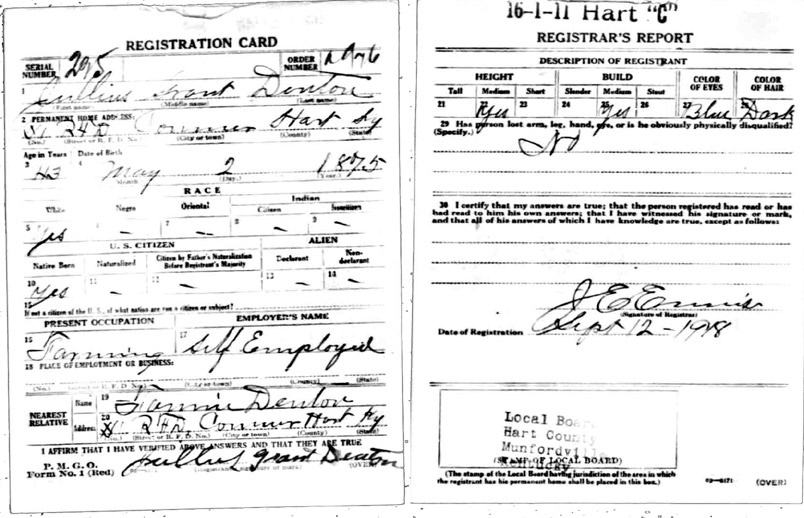 REGISTRATION CARD
SERIAL NUMBER 295 ORDER NUMBER
1 Jullius Grant Denton
(First name) (Middle name) (Last name)
2 PERMANENT HOME ADDRESS:
Hart Ky
(No.) (Street or R. F. D. No.) (City or town) (County) (State)
Age in Years Date of Birth
3 43 4 May 2 1875
Month (Day.) (Year.)
RACE
White Negro Oriental Indian
Citizen Noncitizen
5 yes 6 – 7 – 8 – 9 –
U. S. CITIZEN ALIEN
Native Born Naturalized Citizen by Father's Naturalization Before Registrant's Majority Declarant Non-declarant
10 yes 11 – 12 – 13 – 14 –
15
If not a citizen of the U. S., of what nation are you a citizen or subject?
PRESENT OCCUPATION EMPLOYER'S NAME
16 Farming 17 Self Employed
18 PLACE OF EMPLOYMENT OR BUSINESS:
(No.) (Street or R. F. D. No.) (City or town) (County) (State)
NEAREST RELATIVE Name 19 Fannie Denton
Address 20 Hart Ky
(No.) (Street or R. F. D. No.) (City or town) (County) (State)
I AFFIRM THAT I HAVE VERIFIED ABOVE ANSWERS AND THAT THEY ARE TRUE
P. M. G. O.
Form No. 1 (Red) Jullius Grant Denton (OVER)
16-1-11 Hart "C"
REGISTRAR'S REPORT
DESCRIPTION OF REGISTRANT
HEIGHT BUILD COLOR OF EYES COLOR OF HAIR
Tall Medium Short Slender Medium Stout
21 22 Yes 23 24 25 Yes 26 27 Blue 28 Dark
29 Has person lost arm, leg, hand, eye, or is he obviously physically disqualified?
(Specify.) No
30 I certify that my answers are true; that the person registered has read or has
had read to him his own answers; that I have witnessed his signature or mark,
and that all of his answers of which I have knowledge are true, except as follows:
J E Ennis
(Signature of Registrar)
Date of Registration Sept 12 - 1918
Local Board
Hart County
Munfordville
Kentucky
(STAMP OF LOCAL BOARD)
(The stamp of the Local Board having jurisdiction of the area in which
the registrant has his permanent home shall be placed in this box.)
03—6171 (OVER)